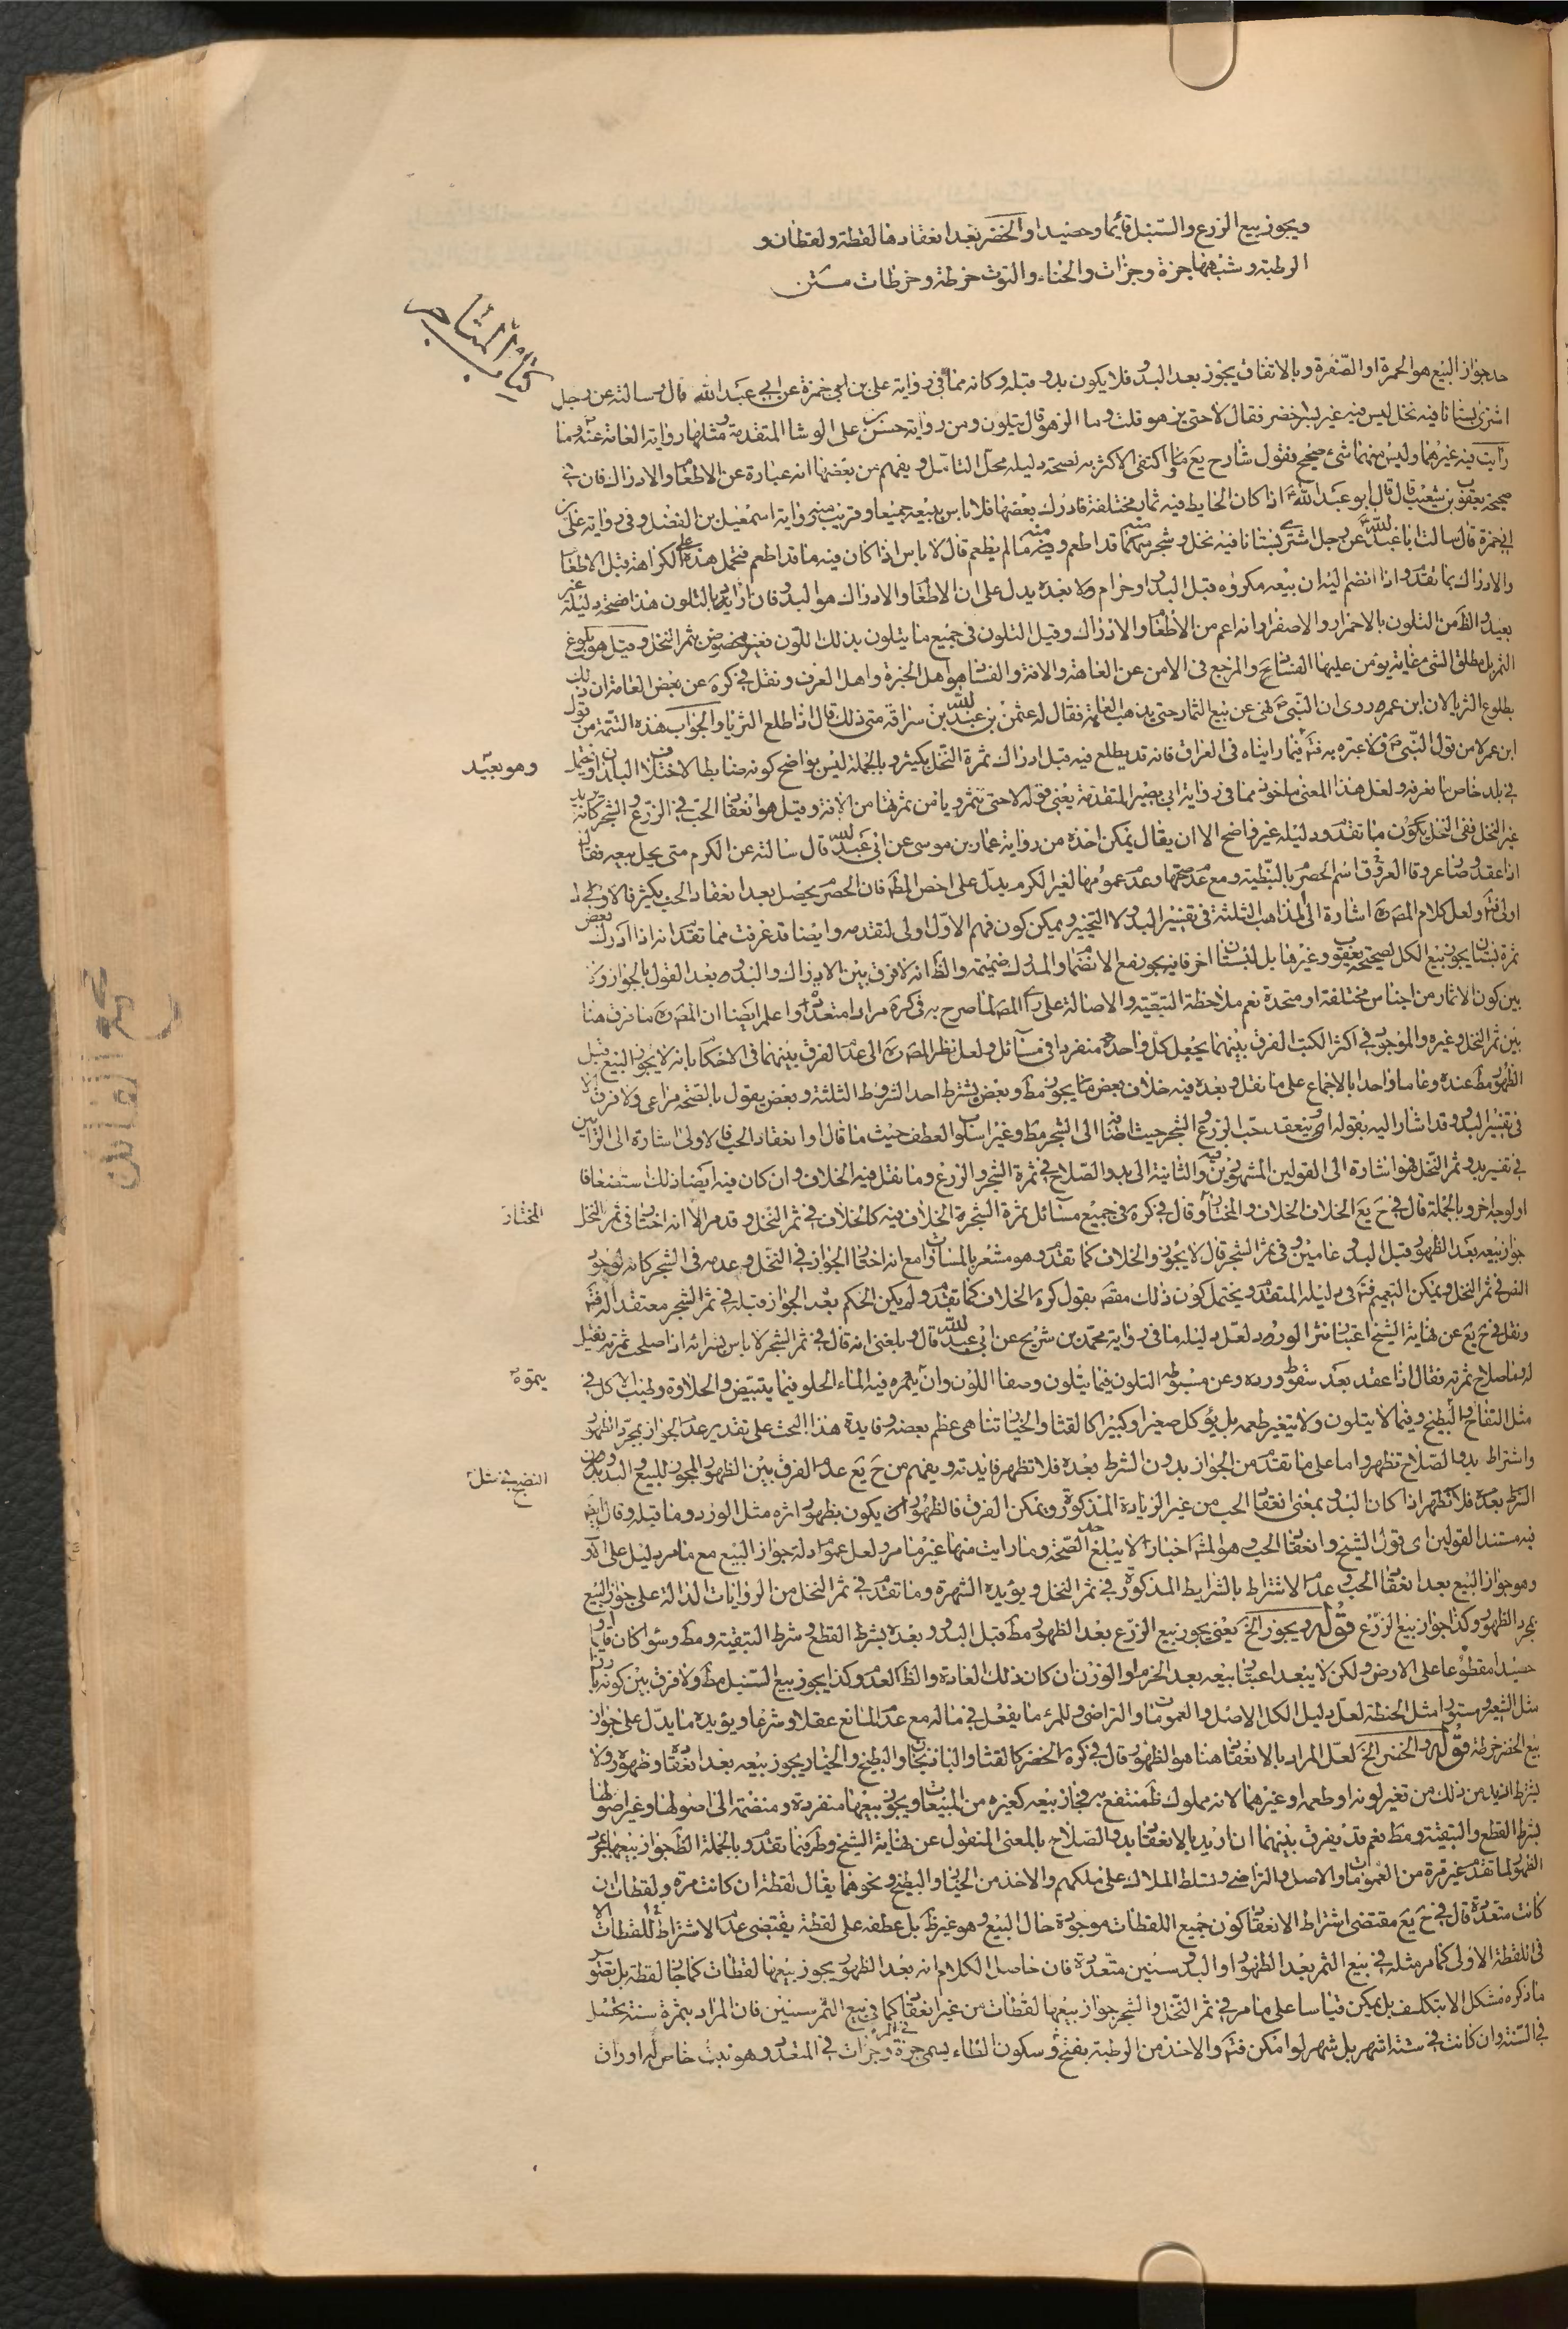 ويجوز بيع الزرع والسنبل قائما وحصيدا والخضر بعد انعقادها لقطة ولقطات و
الرطبة وشبهها جزة وجزات والحناء والتوت خرطة وخرطات متن
كتاب المتاجر
حد جواز البيع هو الحمرة او الصفرة وبالاتفاق يجوز بعد البدو فلا يكون بدو قبله وكانه مما في رواية على بن ابى حمزة عن ابى عبد الله قال سالته عن رجل
اشترى بستانا فيه نخل ليس فيه غير بسر اخضر فقال لا حتى يزهو قلت وما الزهو قال يتلون ومن رواية حسن بن على الوشا المتقدمة ومثلها رواية العامة عنه وما
رايت فيه غيرهما وليس منهما شئ صحيح فقول شارح يع اكتفى الاكثر به لصحة دليله محل التامل ويفهم من بعضها انه عبارة عن الاطعام والادراك فان في
صحيحة يعقوب بن شعيب قال قال ابو عبد الله اذا كان الحايط فيه ثمار مختلفة فادرك بعضها فلا باس ببيعه جميعا وقريب منه رواية اسمعيل بن الفضل وفى رواية على بن
ابى حمزة قال سالت ابا عبد الله عن رجل اشترى بستانا فيه نخل وشجر منه ما قد اطعم ومنه ما لم يطعم قال لا باس اذا كان فيه ما قد اطعم فتحمل هذه على الكراهة قبل الاطعام
والادراك بما تقدم واذا انضم اليه ان بيعه مكروه قبل البدو او حرام ولا بعده يدل على ان الاطعام والادراك هو البدو فان ارادوا بالتلون هذا صحة دليله غير
بعيد والظ من التلون بالاحمرار والاصفرار انه اعم من الاطعام والادراك وقيل التلون فى جميع ما يتلون بذلك اللون فغير مخصوص بثمر النخل وقيل هو بلوغ
الثمر بل مطلق الشئ غاية يؤمن عليها الفساد والمرجع فى الامن عن العاهة والافة والفساد هو اهل الخبرة واهل العرف ونقل في كره عن بعض العامة ان ذلك
بطلوع الثريا لان ابن عمر روى ان النبى نهى عن بيع الثمار حتى يذهب العاهة فقال له عثمن بن عبد الله بن سراقة متى ذلك قال اذا طلع الثريا والجواب هذه التتمة من قول
ابن عمر لا من قول النبى فلا عبرة به فيما رايناه فى العراق فانه قد يطلع فيه قبل ادراك ثمرة النخل بكثير وبالجملة ليس بواضح كونه ضابطا لاختلاف البلدان ويحتمل
وهو بعيد
في بلد خاص ما نعرفه ولعل هذا المعنى ماخوذ مما فى رواية ابى بصير المتقدمة يعنى قوله لا حتى تثمر ويامن ثمرتها من الافة وقيل هو انعقاد الحب فى الزرع والشجر كانه يريد
غير النخل ففى النخل يكون ما تقدم ودليله غير واضح الا ان يقال يمكن اخذه من رواية عمار بن موسى عن ابى عبد الله قال سالته عن الكرم متى يحل بيعه فقال
اذا عقد وصار عروقا العروق اسم الحصرم بالنبطية ومع عدم صحتها وعدم عمومها لغير الكرم يدل على اخص المط فان الحصرم يحصل بعد انعقاد الحب بكثير فالاول
اولى ولعل كلام المص اشارة الى المذاهب الثلثة في تفسير البدو لا التخيير ويمكن كون فهم الاول اولى لتقدمه وايضا قد عرفت مما تقدم انه اذا ادرك بعض
ثمرة بستان يجوز بيع الكل لصحيحة يعقوب وغيرها بل لبستان اخر فانه يجوز مع الانضمام والمدرك ضميمة والظ انه لا فرق بين الادراك والبدو بعد القول بالجواز و
بين كون الاثمار من اجناس مختلفة او متحدة نعم ملاحظة التبعية والاصالة على راى المص لما صرح به فى كره مرارا متعددة واعلم ايضا ان المص ما فرق هنا
بين ثمر النخل وغيره والموجود في اكثر الكتب الفرق بينهما بجعل كل واحدة منفردا فى مسائل ولعل نظر المص الى عدم الفرق بينهما فى الاحكام بانه لا يجوز البيع قبل
الظهور مط عنده وعاما واحدا بالاجماع على ما نقل وبعده فيه خلاف بعض ما يجوز مط وبعض بشرط احد الشروط الثلثة وبعض يقول بالصحة مراعى ولا فرق
فى تفسير البدو وقد اشار اليه بقوله او ينعقد حب الزرع والشجر حيث اضاف الى الشجر مط وغير اسلوب العطف حيث ما قال او انعقاد الحب فالاولى اشارة الى الراى بين
في تفسير بدو ثمر النخل فهو اشارة الى القولين المشهورين فيه والثانية الى بدو الصلاح في ثمرة الشجر والزرع وما نقل فيه الخلاف وان كان فيه ايضا ذلك استضعافا
او لوجه اخر وبالجملة قال فى ح يع الخلاف الخلاف والمختار وقال في كره فى جميع مسائل ثمرة الشجرة الخلاف فيه كالخلاف فى ثمر النخل وقد مر الا انه اختار فى ثمر النخل
المختار
جواز بيعه بعد الظهور قبل البدو عامين وفى ثمر الشجر قال لا يجوز والخلاف كما تقدم وهو مشعر بالمساوات مع انه اختار الجواز فى النخل وعدمه فى الشجر كانه لوجود
النص فى ثمر النخل ويمكن التعميم فى دليله المتقدم ويحتمل كون ذلك مقصد بقول كره الخلاف كما تقدم ولم يكن الحكم بعدم الجواز قبله في ثمر الشجر معتقدا له
ونقل فى ح يع عن نهاية الشيخ اعتبار نثر الورد ولعل دليله ما فى رواية محمد بن شريح عن ابى عبد الله قال وبلغنى انه قال فى ثمر الشجر لا باس بشرائه اذا صلحت ثمرته فقيل
له وما صلاح ثمرته فقال اذا عقد بعد سقوط ورده وعن مبسوطه التلون فيما يتلون وصفا اللون وان يتموه فيه الماء الحلو فيما يبيض والحلاوة وطيب الاكل فى
يتموه
مثل التفاح والبطيخ وفيما لا يتلون ولا يتغير طعمه بل يؤكل صغيرا وكبيرا كالقثا والخيار تناهى عظم بعضه وفايدة هذا البحث على تقدير عدم الجواز بمجرد الظهور
واشتراط بدو الصلاح تظهر واما على ما تقدم من الجواز بدون الشرط بعده فلا تظهر فايدته ويفهم من ح يع عدم الفرق بين الظهور المجوز للبيع والبدو
النضج فى مثل
الشرط بعده فلا تظهر اذا كان البدو بمعنى انعقاد الحب من غير الزيادة المذكورة ويمكن الفرق فالظهور ان يكون بظهور اثره مثل الورد وما قبله وقال
فيه مستند القولين اى قول الشيخ وانعقاد الحب وهو المش اخبار لا يبلغ حد الصحة وما رايت منها غير ما مر ولعل عموم ادلة جواز البيع مع ما مر دليل على
وهو جواز البيع بعد انعقاد الحب عدم الاشتراط بالشرايط المذكورة فى ثمر النخل ويؤيده الشهرة وما تقدم فى ثمر النخل من الروايات الدالة على جواز البيع
بمجرد الظهور وكذا جواز بيع الزرع قوله ويجوز الخ يعنى يجوز بيع الزرع بعد الظهور مط قبل البدو وبعده بشرط القطع وشرط التبقية ومط وسواء كان قايما او
حصيدا مقطوعا على الارض ولكن لا يبعد اعتبار بيعه بعد الحزم او الوزن ان كان ذلك العادة والظ العدم وكذا يجوز بيع السنبل مط ولا فرق بين كونه بارزا
مثل الشعير ومستورا مثل الحنطة لعل دليل الكل الاصل والعمومات والتراضى وللمرء ما يفعل في ماله مع عدم المانع عقلا وشرعا ويؤيده ما يدل على جواز
بيع الخضر خرطة قوله والخضر الخ لعل المراد بالانعقاد هنا هو الظهور قال في كره الخضر كالقثا والباذنجان والبطيخ والخيار يجوز بيعه بعد انعقاده وظهوره ولا
يشترط ازيد من ذلك من تغير لونه او طعمه او غيرهما لانه مملوك ظ منتفع به فجاز بيعه كغيره من المبيعات ويجوز بيعها منفردة ومنضمة الى اصولها وغير اصولها
بشرط القطع والتبقية ومط نعم قد يفرق بينهما ان اريد بالانعقاد بدو الصلاح بالمعنى المنقول عن نهاية الشيخ وط فيما تقدم وبالجملة الظ جواز بيعها بمجرد
الظهور لما تقدم غير مرة من العمومات والاصل والتراضي وتسلط الملاك على ملكهم والاخذ من الخيار والبطيخ ونحوهما يقال لقطة ان كانت مرة ولقطات ان
كانت متعددة قال فى ح يع مقتضى اشتراط الانعقاد كون جميع اللقطات موجودة حال البيع وهو غير ظ بل عطفه على لقطة يقتضى عدم الاشتراط للقطات الا
فى اللقطة الاولى كما مر مثله فى بيع الثمر بعد الظهور او البدو سنين متعددة فان حاصل الكلام انه بعد الظهور يجوز بيعها لقطات كما جاز لقطة بل تصور
ما ذكره مشكل الا بتكلف بل يمكن قياسا على ما مر فى ثمر النخل والشجر جواز بيعها لقطات من غير انعقاد كما فى بيع الثمر سنين فان المراد بثمرة سنة يحصل
في السنة وان كانت في ستة اشهر بل شهر لو امكن والاخذ من الرطبة بفتح و سكون الطاء يسمى جزة وجزات فى المتعدد وهو نبت خاص له اوراق